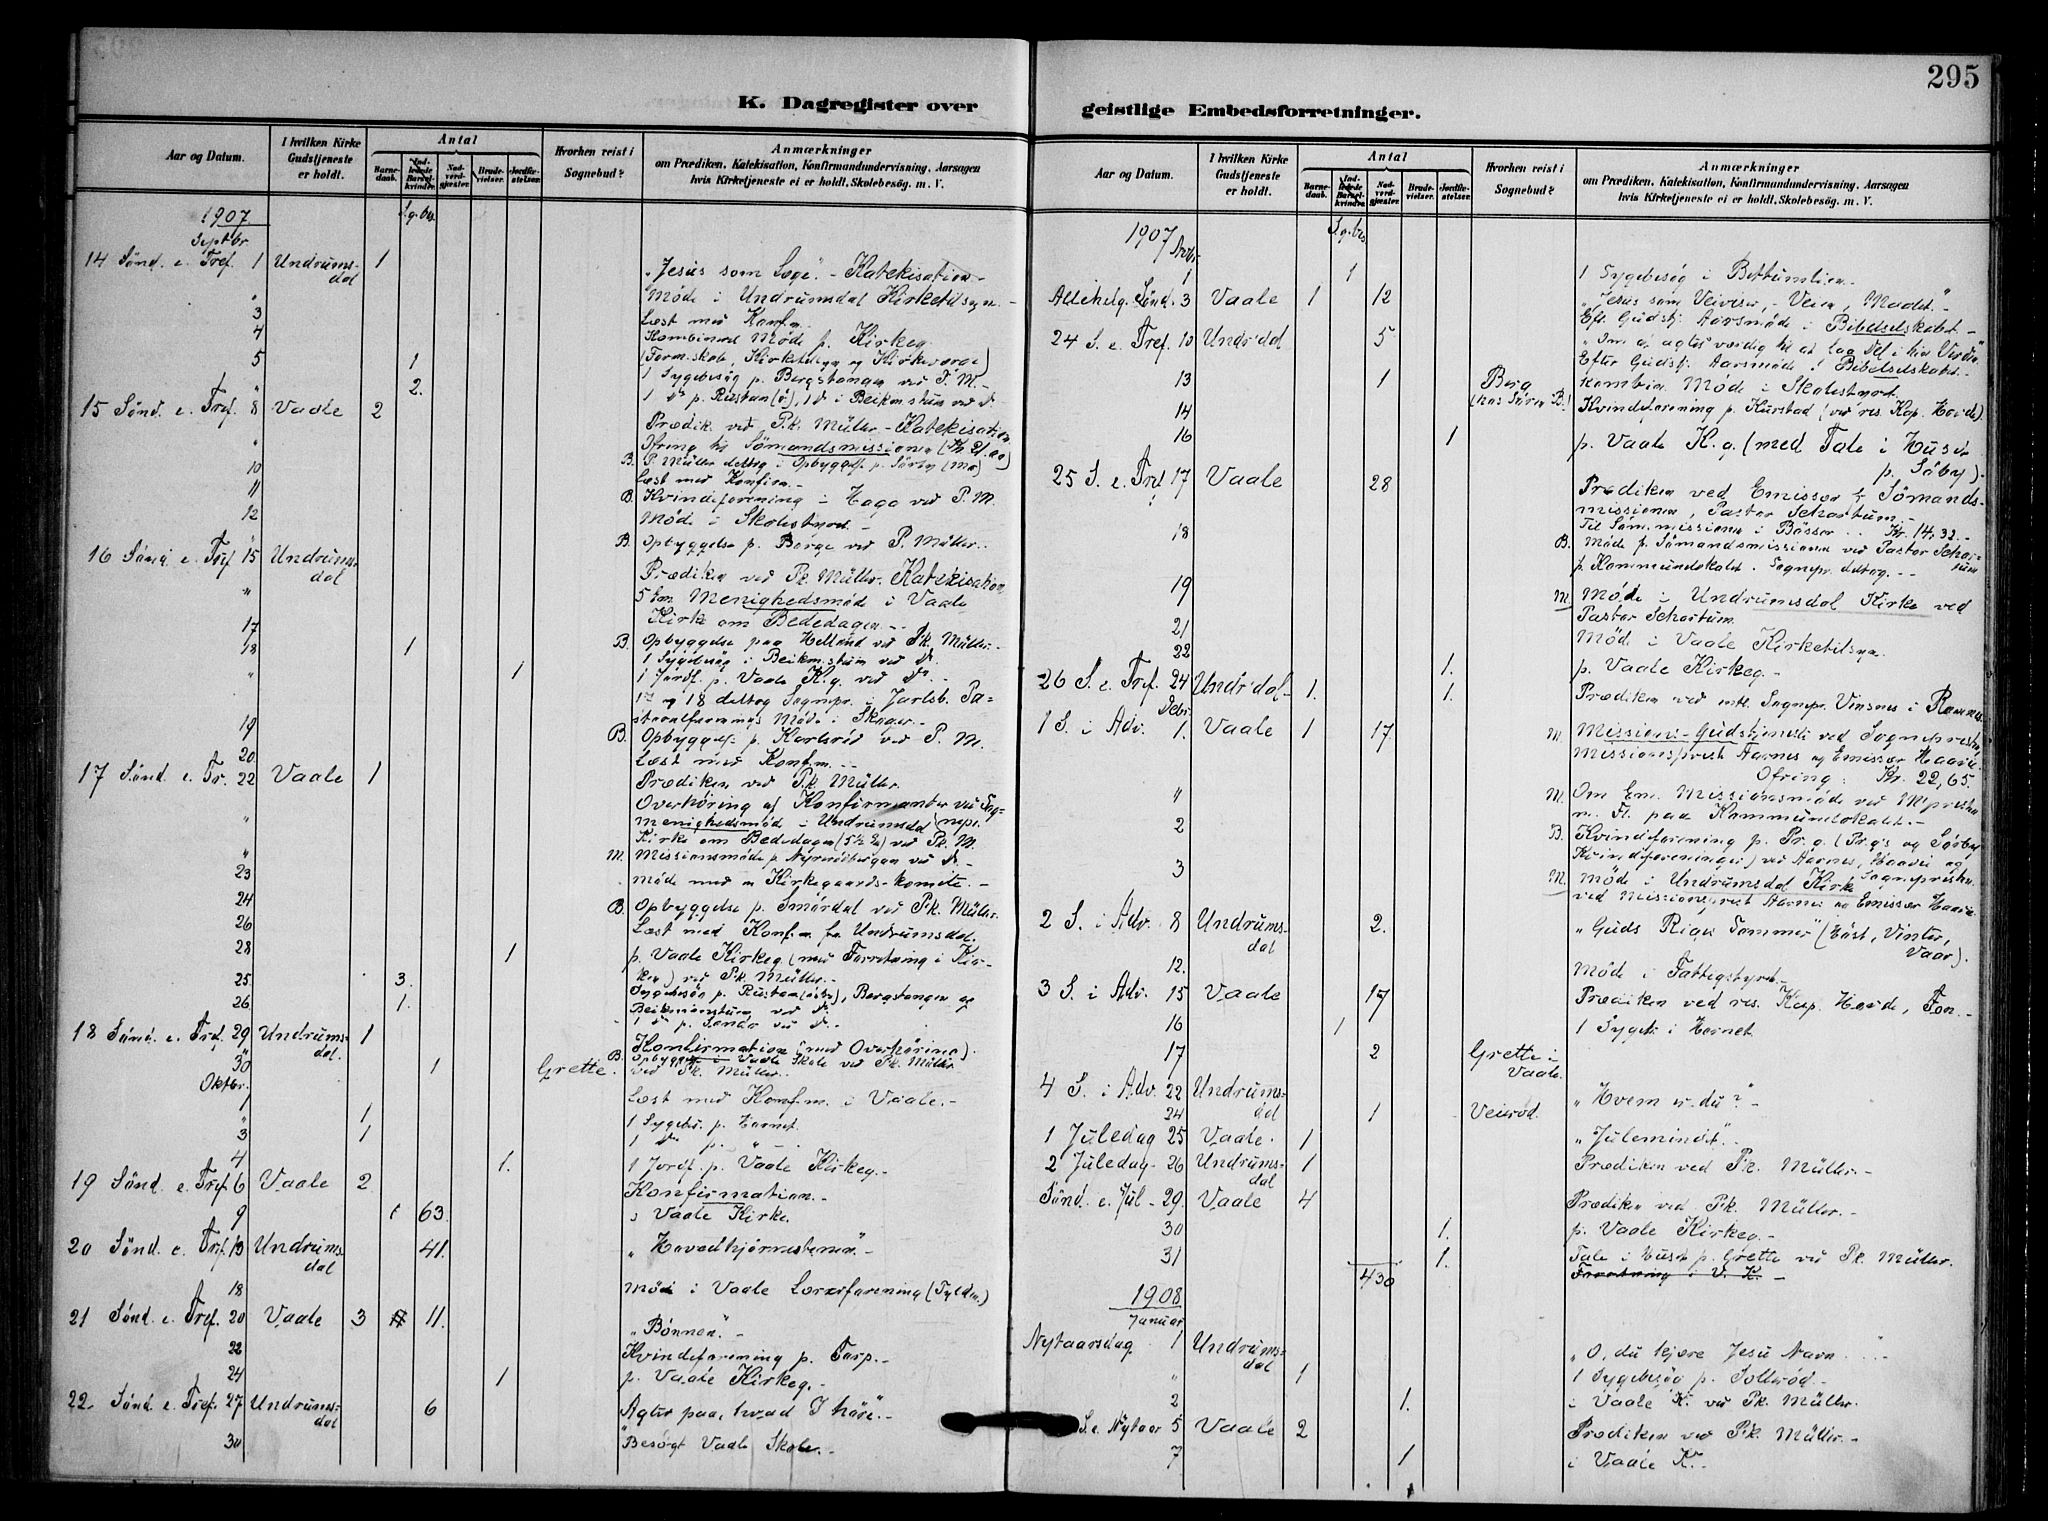 295
K. Dagregister over
Aar og Datum.
I hvilken Kirke Gudstjeneste er holdt.
Antal
Barnedaab.
Indledede Barselkvinder.
Nadverdgjæster.
Brudevielser.
Jordfæstelser.
Hvorhen reist i Sognebud?
Anmærkninger
om Prædiken, Katekisation, Konfirmandundervisning, Aarsagen
hvis Kirketjeneste ei er holdt, Skolebesøg. m. V.
1907
Septbr
14 Sønd. e. Tref. 1 Undrumsdal 1
"Jesus som Læge". - Katekisation -
" Møde i Undrumsdal Kirketilsyn. -
3 Læst med Konfm.
4 Kombineret Møde p. Kirkeg.
(Form.skab, Kirketilsyn og Kirkeværge)
5 1 1 Sygebesøg p. Bergstangen ved P. M. -
" 2.
15 Sønd. e. Tref. 8 Vaale 2
Prædik. ved P.k. Müller - Katekisation.
Ofring til Sømandsmissionen
10 Læst med Konfirm. -
11 B. Kvindeforening i Haga ved P. M.
12 Møde i Skolestyret. -
B. Opbyggelse p. Borge ved P. Müller.
16 Sønd. e. Tref. 15 Undrumsdal
Prædiken ved P.k. Müller. Katekisation
Menighedsmøde i Vaale
Kirke om Bededagen -
17 B. Opbyggelse paa Helland ved P.k. Müller. -
18 1 1 Sygebesøg i Beikm.stuen ved Do.
" 1 1 Jordf. p. Vaale K.g. ved Do. -
17 og 18 deltog Sognepr. i Jarlsb. Pastoralforenings Møde i Skoger. -
19 B. Opbyggelse p. Karlsrød ved P. M.
20 Læst med Konfm. -
17 Sønd. e. Tr. 22 Vaale 1
Prædiken ved P.k. Müller.
Overhøring af Konfirmander ved Sognepr.
" Menighedsmøde i Undrumsdal
Kirke om Bededagen (5½ Em) ved P.k. M.
" M. Missionsmøde p. Nyrerødbergan ved Do. -
23 Møde med Kirkegaards-komite. -
24 B. Opbyggelse p. Smørdal ved P.k. Müller.
26 Læst med Konfm. fra Undrumsdal.
28 1 p. Vaale Kirkeg. (med Forretning i Kirken) ved P.k. Müller. -
25 3.
26 1.
18 Sønd. e. Tref. 29 Undrumsdal. 1
Konfirmation (med Overhøring).
B. Opbyggelse i Vaale Skole ved P.k. Müller
30 1 Grette. ved P.k. Müller. -
Oktbr.
1 Læst med Konfm. i Vaale. -
" 1 1 Sygebes. p. Hornet.
3 1 1 Do p. " -
4 1. 1 Jordf. p. Vaale Kirkeg. -
19 Sønd. e. Tref. 6 Vaale 2 Konfirmation. -
9 63. i Vaale Kirke.
20 Sønd. e. Tref. 13 Undrumsdal 41. "Hovedhjørnestenen" -
18 Møde i Vaale Lærerforening
21 Sønd. e. Tref. 20 Vaale 3 11. "Bønnen". -
22 Kvindeforening p. Torp. -
24 1 p. Vaale Kirkeg. -
22 Sønd. e. Tref. 27 Undrumsdal 6 "Agter paa, hvad I høre". -
30 Besøgt Vaale Skole. -
geistlige Embedsforretninger.
Aar og Datum.
I hvilken Kirke Gudstjeneste er holdt.
Antal
Barnedaab.
Indledede Barselkvinder.
Nadverdgjæster.
Brudevielser.
Jordfæstelser.
Hvorhen reist i Sognebud?
Anmærkninger
om Prædiken, Katekisation, Konfirmandundervisning, Aarsagen
hvis Kirketjeneste ei er holdt, Skolebesøg. m. V.
1907
1 1 1 Sygebesøg i
Allehelg. Sønd. 3 Vaale 1 12 "Jesus som Veiviser, - Veien, Maalet."
Eft. Gudstj. Aarsmøde i Bibelselskabet -
24 S. e. Tref. 10 Undr'dal 5
Efter Gudstj. Aarsmøde i Bibelselskabet.
13 1 Berg (hos Søren B.) Kombin. Møde i Skolestyret.
14 Kvindeforening p. Kurstad (ved res. Kap. Hovde)
16 1 p. Vaale K.g. (med Tale i Huset
p. Søby).
25 S. e. Tref. 17 Vaale 28
Prædiken ved Emissær f. Sømandsmissionen, Pastor Schartum. -
Til Søm.missionen i Bøsser .. Kr. 14,32. -
18 B. Møde f. Sømandsmissionen ved Pastor Schartum
p. Kommunelokalet. Sognepr. deltog. -
19 M. Møde i Undrumsdal Kirke ved
Pastor Schartum.
21 Møde i Vaale Kirketilsyn.
22 1. p. Vaale Kirkeg. -
26 S. e. Tref. 24 Undr'dal - 1. 1. Prædiken ved mtl. Sognepr. Vinsnes i Ramnes
Debr.
1 S. i Adv. 1. Vaale 1 17.
M. Missions-Gudstjeneste ved Sognepresten,
missionsprest Aarnes og Emissær Haavie
Ofring: Kr. 22,65.
" M. Om Em. Missionsmøde ved M'presten
m. Fl. paa Kommunelokalet. -
2 B. Kvindeforening p. Pr.g. (Pr.g's og Sørby
Kvindeforeninger) ved Aarnes, Haavie og
Sognepresten
3 M. Møde i Undrumsdal Kirke
ved Missionsprest Aarnes og Emissær Haavie
2 S. i Adv. 8 Undrumsdal 2. "Guds Riges Sommer" (Høst, Vinter,
Vaar).
12. Møde i Fattigstyret. -
3 S. i Adv. 15 Vaale 17 Prædiken ved res. Kap. Hovde, Fon. -
16 1 1 Sygeb. i Hornet.
17 2 Grette i Vaale.
4 S. i Adv. 22 Undrumsdal "Hvem er du?" -
24 1 Veierød.
1 Juledag 25 Vaale. 1 "Juleminde". -
2 Juledag - 26 Undrumsdal 1 Prædiken ved P.k. Müller. -
Sønd. e. Jul - 29. Vaale 4 Prædiken ved P.k. Müller. -
30 1. p. Vaale Kirkeg. -
31 1. Tale i Huset p. Grette ved P.k. Müller.
Forretning i V. K. -
430
1908
Januar
Nytaarsdag 1 Undrumsdal "O, du kjære Jesu Navn
" 1 1 Sygebesøg p. Sollerød. -
2 1. i Vaale K. ved P.k. Müller.
S. e. Nytaar 5 Vaale 2 Prædiken ved P.k. Müller. -
7 1 i Vaale K. -